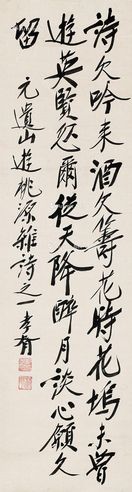 詩欠吟来酒欠籌花時花塢未曾
遊英賢忽爾從天降醉月談心願久
留
元遺山遊桃源雜詩之一 孝胥